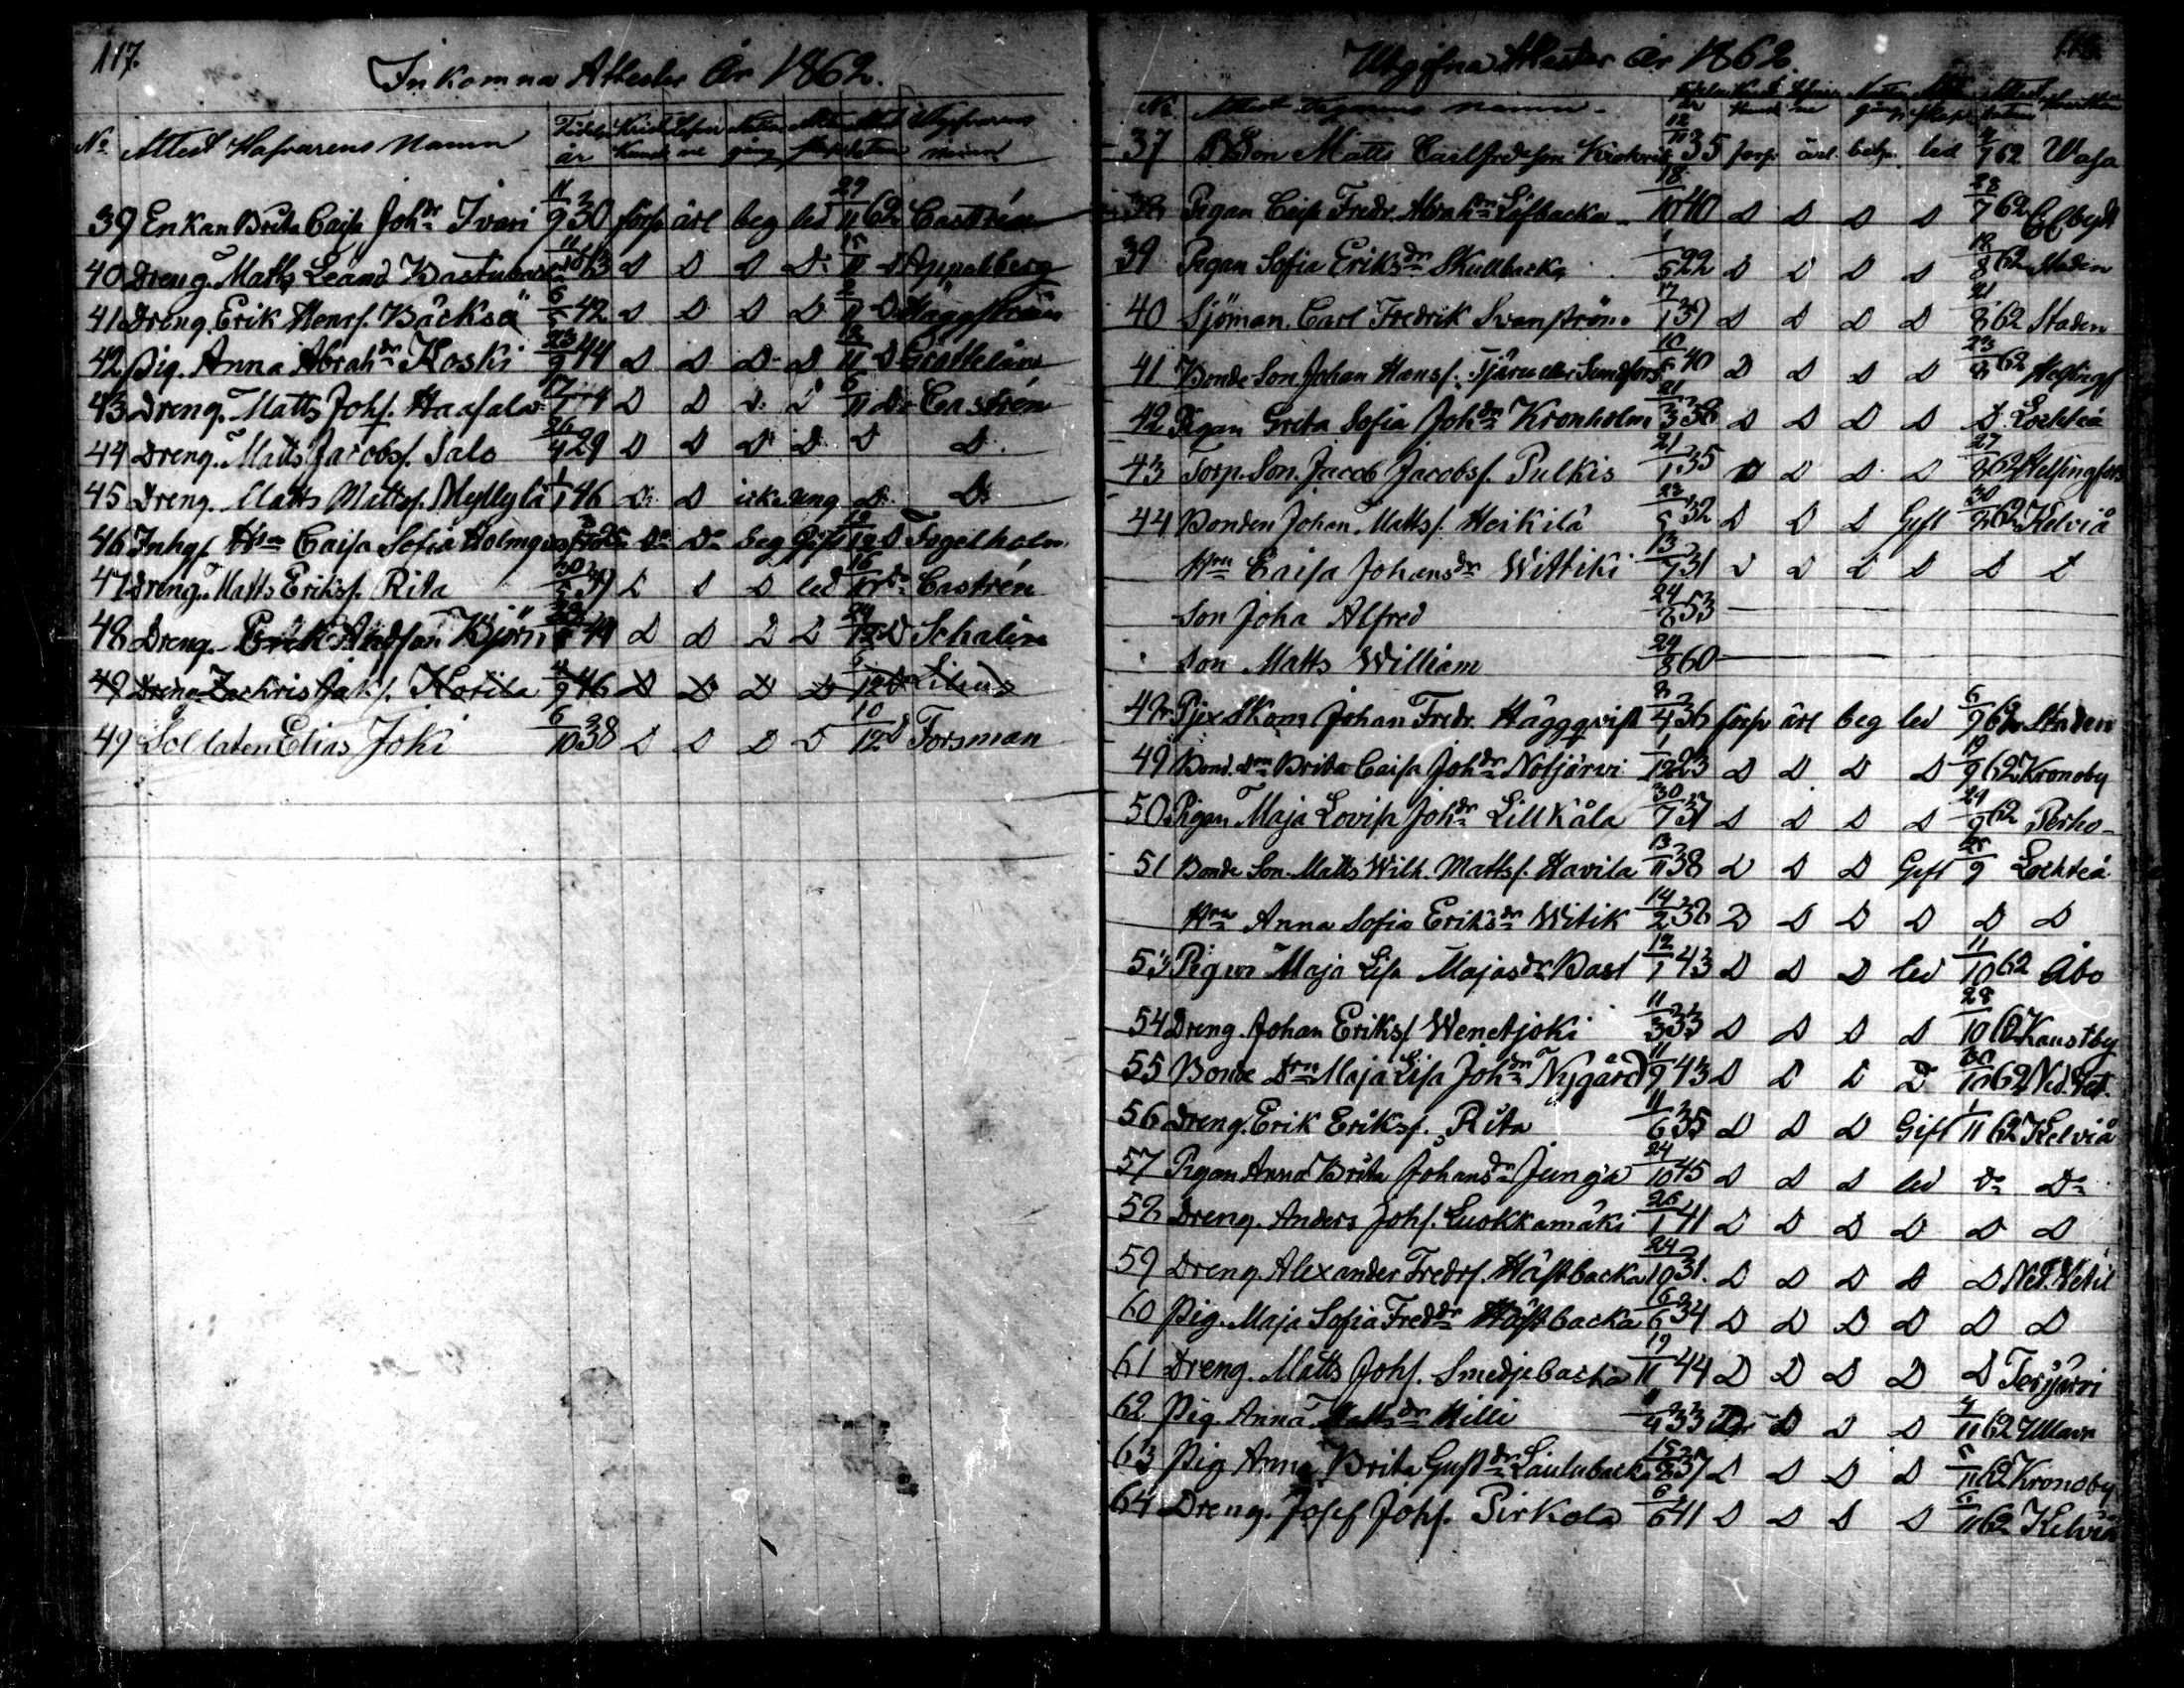 117.
Inkomna Attester År 1862.
No Attest Hafvarens Namn Födelse år Krist Kunsk Lefver ne Nattv. gång Attest datum Utgifvarens namn
39 Enkan Brita Caisa Johdr Ivari 11/9 30 förs ärl beg led 29/11 62 Castrén
40 Dreng. Matts Leand Bastubacka D D D D D Appelberg
41 Dreng. Erik Henrs. Bäckså 42 D D D D D Häggström
42 Pig. Anna Abrahdr Koski 23/9 44 D D D D D
43 Dreng. Matts Johs. Haasala D D D D 6/11 D Castrén
44 Dreng. Matts Jacobs. Salo 26/4 29 D D D D D D
45 Dreng. Matts Mattss. Myllylä 1/1 46 D D icke ung D D
46 Inhys Hon Caisa Sofia Holmqvist Do Do beg gift D Fogelholm
47 Dreng. Matts Eriks. Rita 30/5 37 D D D led 16/11 Do Castrén
48 Dreng. Erik Andsson Björn 44 D D D D 24/12 D Schalin
49 Dreng Zachris Jaks. Korila 4/9 46 D D D D 5/12 D Lilius
49 Soldaten Elias Joki 6/10 38 D D D D 10/12 D Forsman
Utgifna Attester år 1862.
No Attest Tagarens namn Födelse år Krist. Kunsk
37 B Son Matts Carlfredrson Kisko 12/11 35 förs. ärl. beh. led 4/7 62 Wasa
38 Pigan Caisa Fredr. Abrahdr Löfbacka 18/10 40 D D D D 28/7 62
39 Pigan Sofia Eriksdr Skullbacka 1/5 22 D D D D 18/8 62 Staden
40 Sjöman. Carl Fredrik Svanström 17/1 37 D D D D 21/8 62 Staden
41 Bonde Son Johan Hanss. Tjäru eller Sundfors 10/6 40 D D D D 23/8 62 Helsingf
42 Pigan Greta Sofia Johdr Kronholm 21/3 38 D D D D D. Lochteå
43 Torp. Son. Jacob Jacobs. Pulkis 21/1 35 D D D D 27/8 62 Helsingfors
44 Bonden Johan Mattss. Heikilä 23/5 32 D D D Gift 30/8 62 Kelviå
Hru Caisa Johansdr Wittiki 13/7 31 D D D D D D
Son Joha Alfred 24/8 53
Son Matts William 24/8 60
48 Johan Fredr. Häggqvist 2/4 36 förs ärl beg led 6/9 62 Staden
49 Bond. Drn Brita Caisa Johdr Notjärvi 1/12 23 D D D D 19/9 62 Kronoby
50 Pigan Maja Lovisa Johdr Lillkåla 30/7 37 D D D D 24/9 62 Perho
51 Bonde Son. Matts Wilh. Mattss. Havila 13/11 38 D D D Gift 9 Lochteå
Hru Anna Sofia Eriksdr Witik 14/2 38 D D D D D D
53 Pigan Maja Lisa Majasdr Bast 12/1 43 D D D led 11/10 62 Åbo
54 Dreng. Johan Eriks. Wenetjoki 11/3 33 D D D D 28/10 62 Kaustby
55 Bonde Drn Maja Lisa Johdr Nygård 11/9 43 D D D D 30/10 62 Ned. Vet.
56 Dreng. Erik Eriks. Rita 11/6 35 D D D Gift 1/11 62 Kelviå
57 Pigan Anna Brita Johansdr Junga 24/10 45 D D D led Do Do
58 Dreng. Anders Johs. Luokkamäki 26/1 41 D D D D D D
59 Dreng. Alexander Fredrs. Hästbacka 24/10 31. D D D D D Ned. Vetil
60 Pig. Maja Sofia Freddr Hästbacka 16/6 34 D D D D D D
61 Dreng. Matts Johs. Smedjebacka 19/11 44 D D D D D Terijärvi
62 Pig. Anna Mattsdr Hilli 4 33 D D D D 4/11 62 Ullava
63 Pig Anna Brita Gustdr Laulubacka 15/8 37 D D D D 5/11 62 Kronoby
64 Dreng. Josef Johs. Pirkola 6/6 41 D D D D 6/11 62 Kelviå